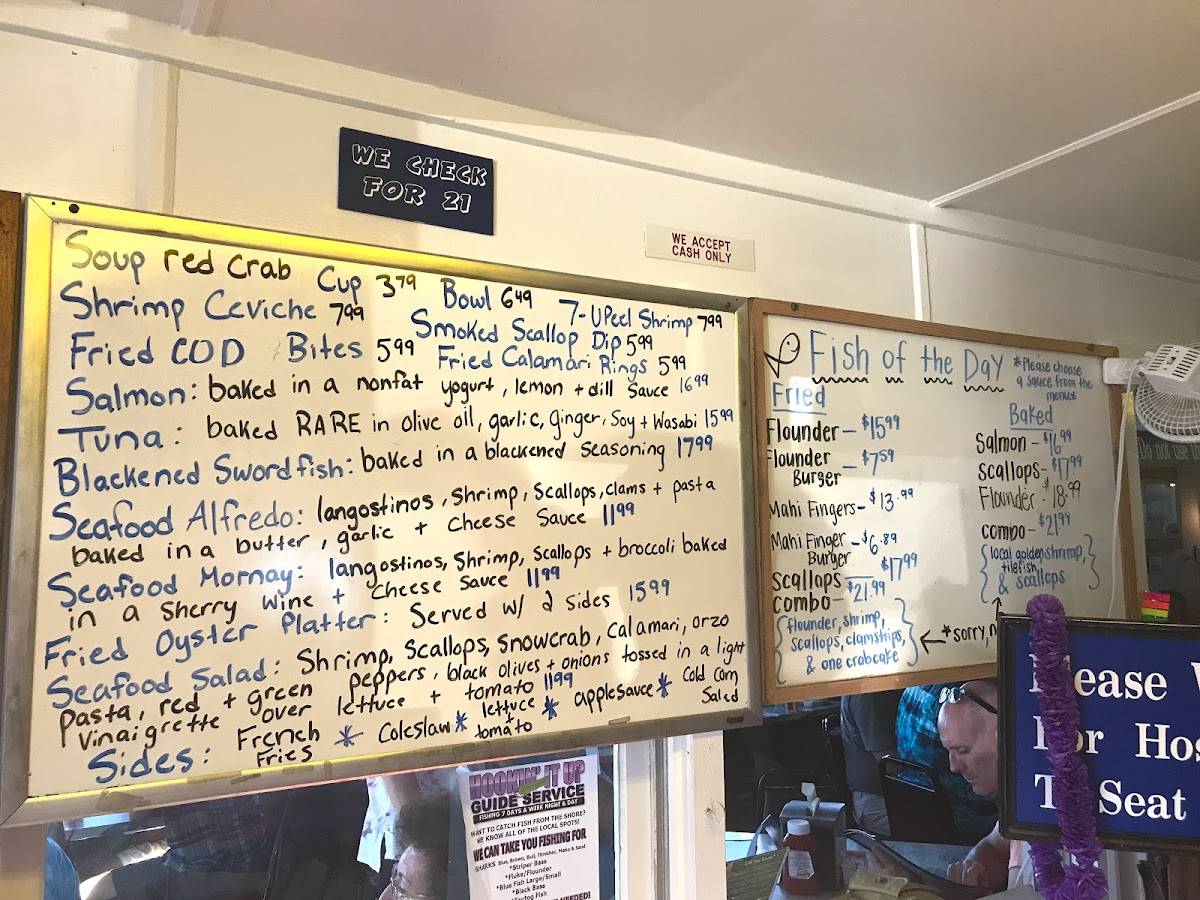 WE CHECK
FOR 21
WE ACCEPT
CASH ONLY
Soup red Crab Cup 3.79 Bowl 6.49
Shrimp Ceviche 7.99 7-UPeel Shrimp 7.99
Smoked Scallop Dip 5.99
Fried COD Bites 5.99 Fried Calamari Rings 5.99
Salmon: baked in a nonfat yogurt, lemon + dill Sauce 16.99
Tuna: baked RARE in olive oil, garlic, Ginger, Soy + Wasabi 15.99
Blackened Swordfish: baked in a blackened seasoning 17.99
Seafood Alfredo: langostinos, Shrimp, Scallops, clams + pasta
baked in a butter, garlic + Cheese Sauce 11.99
Seafood Mornay: langostinos, Shrimp, Scallops + broccoli baked
in a Sherry wine + Cheese Sauce 11.99
Fried Oyster Platter: Served w/ 2 Sides 15.99
Seafood Salad: Shrimp, Scallops, Snowcrab, Calamari, orzo
pasta, red + green peppers, black olives + onions tossed in a light
vinaigrette over lettuce + tomato 11.99
Sides: French Fries * Coleslaw * lettuce tomato * applesauce * Cold Corn Salad
Fish of the Day
*Please choose
a sauce from the
menu*
Fried
Flounder - $15.99
Flounder
Burger - $7.59
Mahi Fingers - $13.99
Mahi Finger
Burger - $6.89
Scallops $17.99
Combo - $21.99
{flounder, shrimp,
scallops, clamstrips,
& one crabcake}
Baked
Salmon - $16.99
Scallops - $17.99
Flounder - $18.99
combo - $21.99
{local golden
tilefish, shrimp,
& scallops}
*sorry, n
Please W
For Hos
To Seat
Do not use
HOOKIN' IT UP
GUIDE SERVICE
FISHING 7 DAYS A WEEK NIGHT & DAY
WANT TO CATCH FISH FROM THE SHORE?
WE KNOW ALL OF THE LOCAL SPOTS!
WE CAN TAKE YOU FISHING FOR
SHARKS Blue, Brown, Bull, Thresher, Mako & Sand
*Striper Bass
*Fluke/Flounder
*Blue Fish Large/Small
*Black Bass